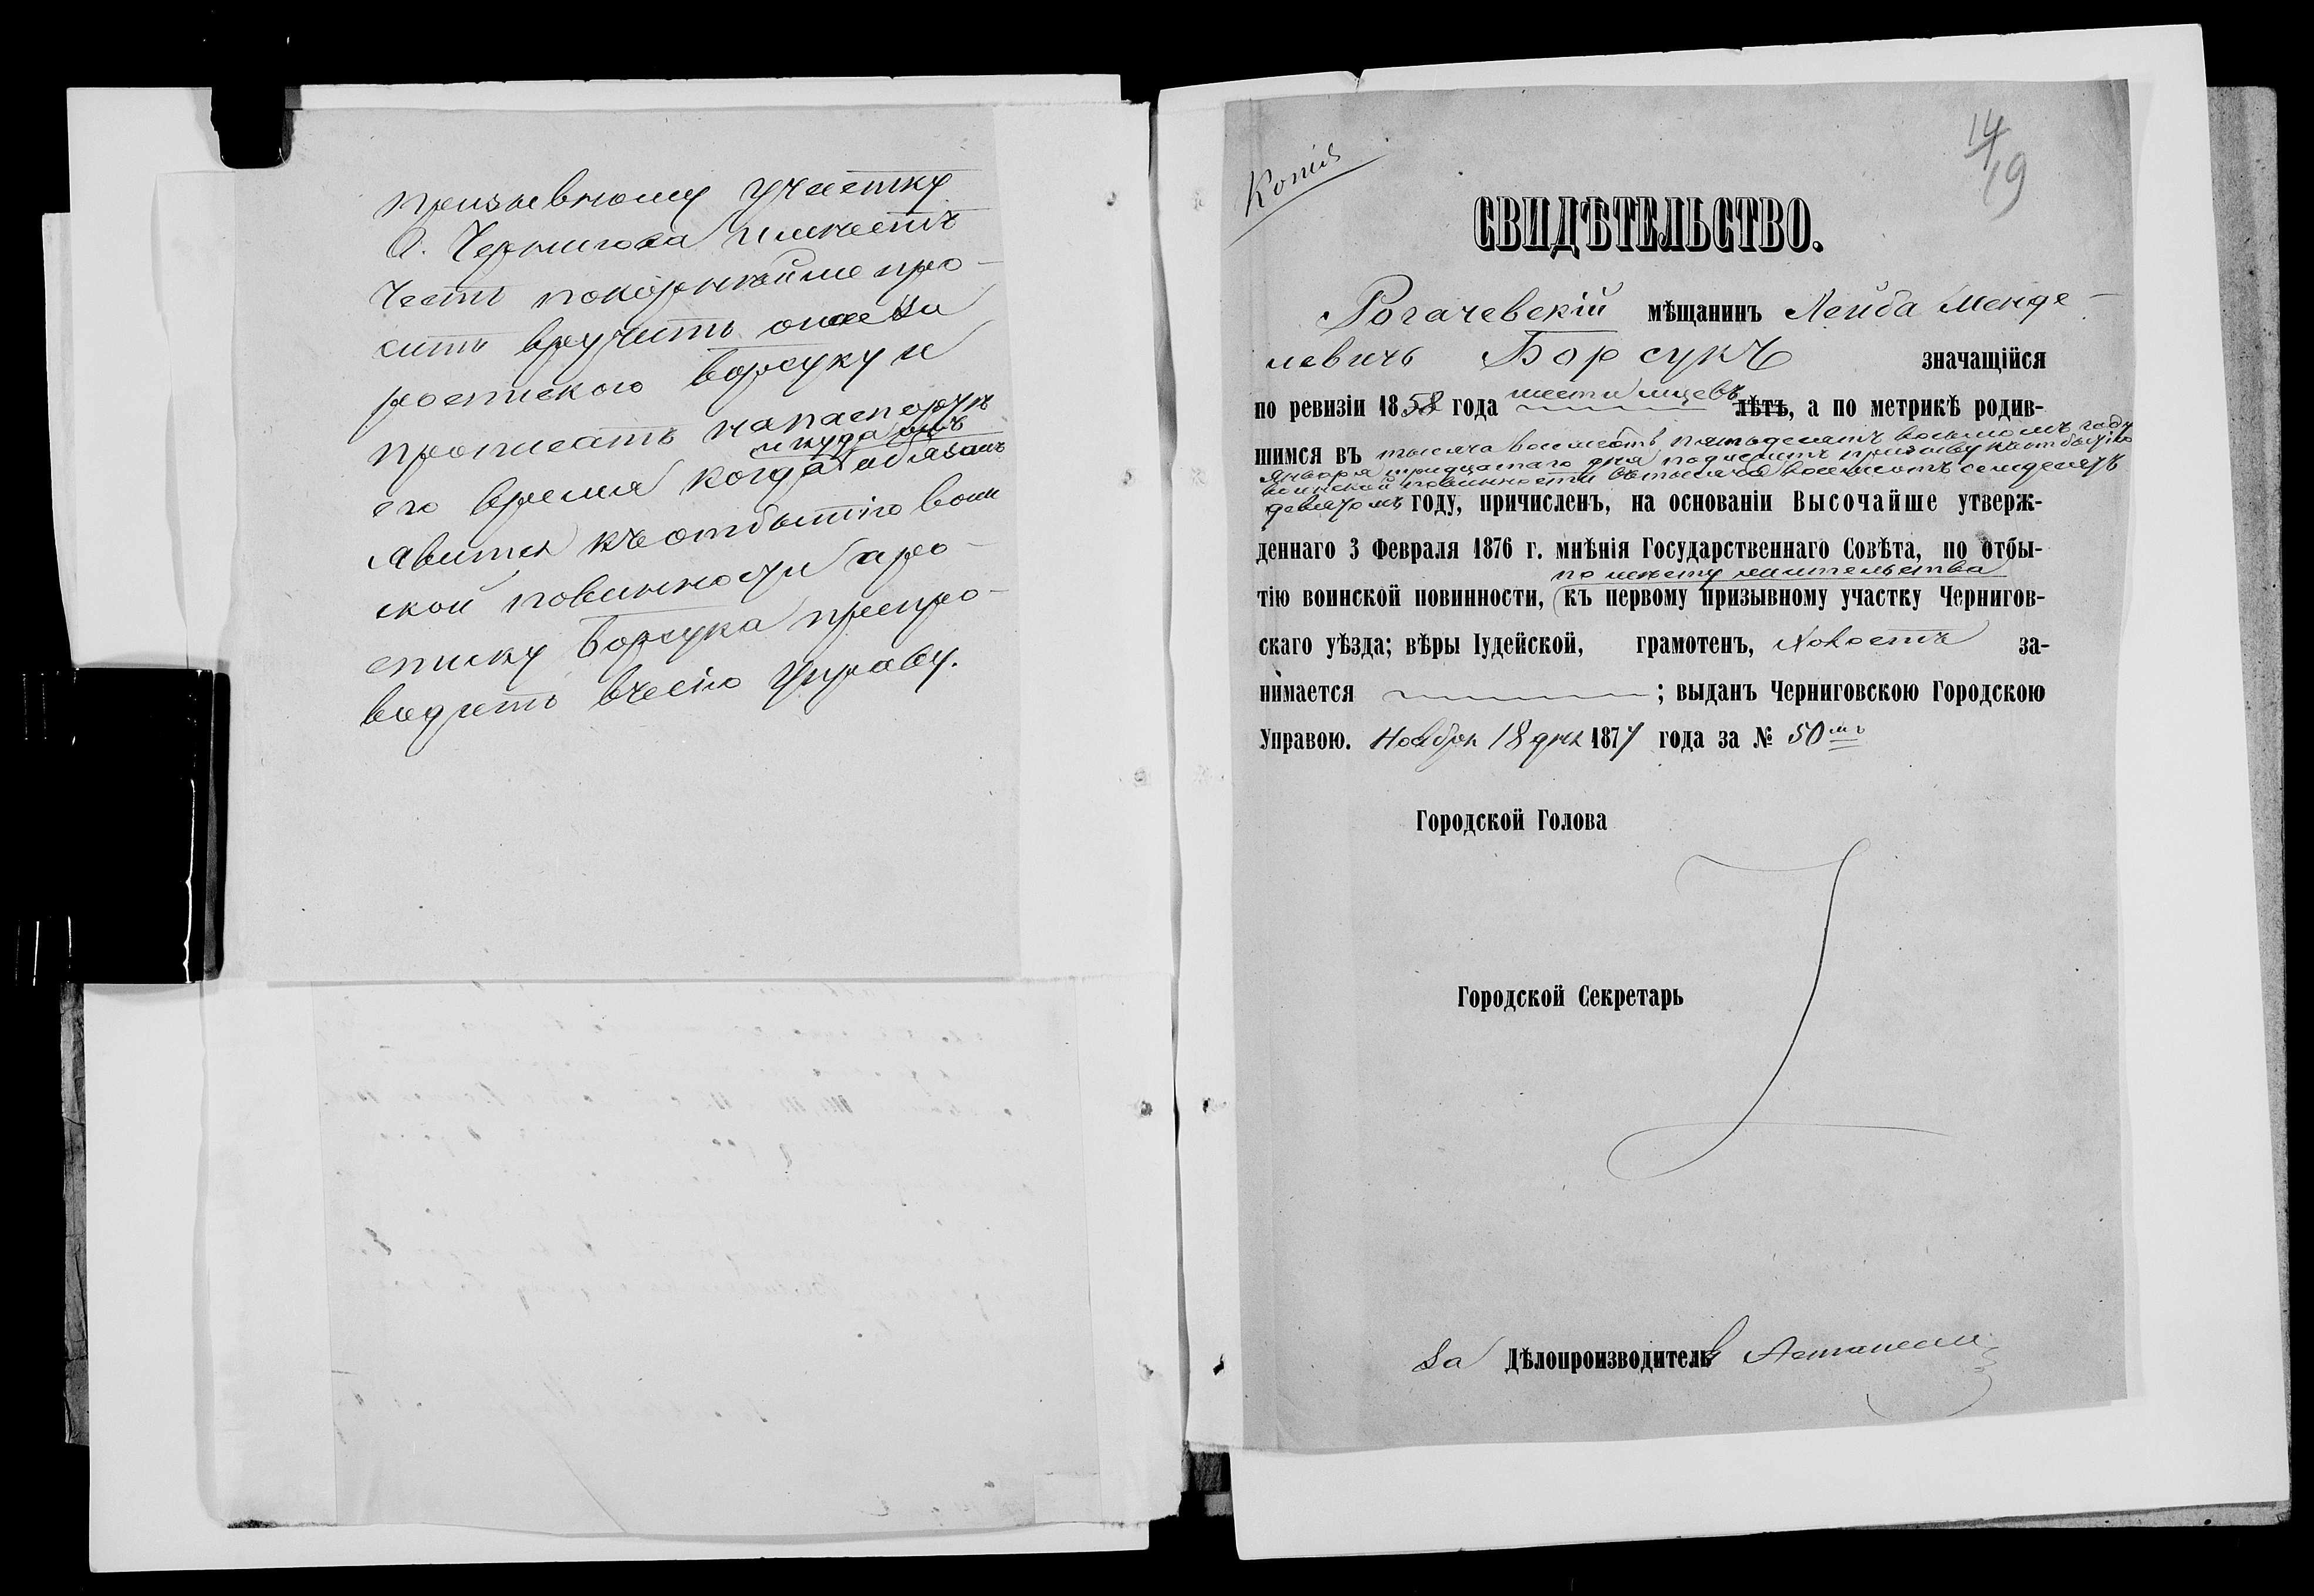 призывному участку
г. Чернигова имѣетъ
честь покорнѣйше про-
сить вручить оное за
роспискою Борсуку и
прописать на паспортѣ
и куда онъ
его время когда обязанъ
явится къ отбытію воин
ской повинности а ро-
списку Борсука препро-
водить в сею Управу.
14
19
Копія
СВИДѢТЕЛЬСТВО.
Рогачевскій мѣщанинъ Лейба Менде-
левичъ Борсукъ значащійся
шести мцевъ
по ревизіи 1858 года лѣтъ, а по метрикѣ родив-
шимся въ тысяча восемьсотъ пятьдесятъ восьмомъ году
января тридцатаго дня подлежитъ призыву къ отбытію
воинской повинности въ тысяча восемьсотъ семдесятъ
девятомъ году, причисленъ, на основаніи Высочайше утверж-
деннаго 3 Февраля 1876 г. мнѣнія Государственнаго Совѣта, по отбы-
по мѣсту жительства
тію воинской повинности, (къ первому призывному участку Чернигов-
скаго уѣзда; вѣры Іудейской, грамотенъ, холостъ за-
нимается ; выданъ Черниговскою Городскою
Управою. Ноября 18 дня 1877 года за № 50мъ
Городской Голова
Городской Секретарь
За Дѣлопроизводителя